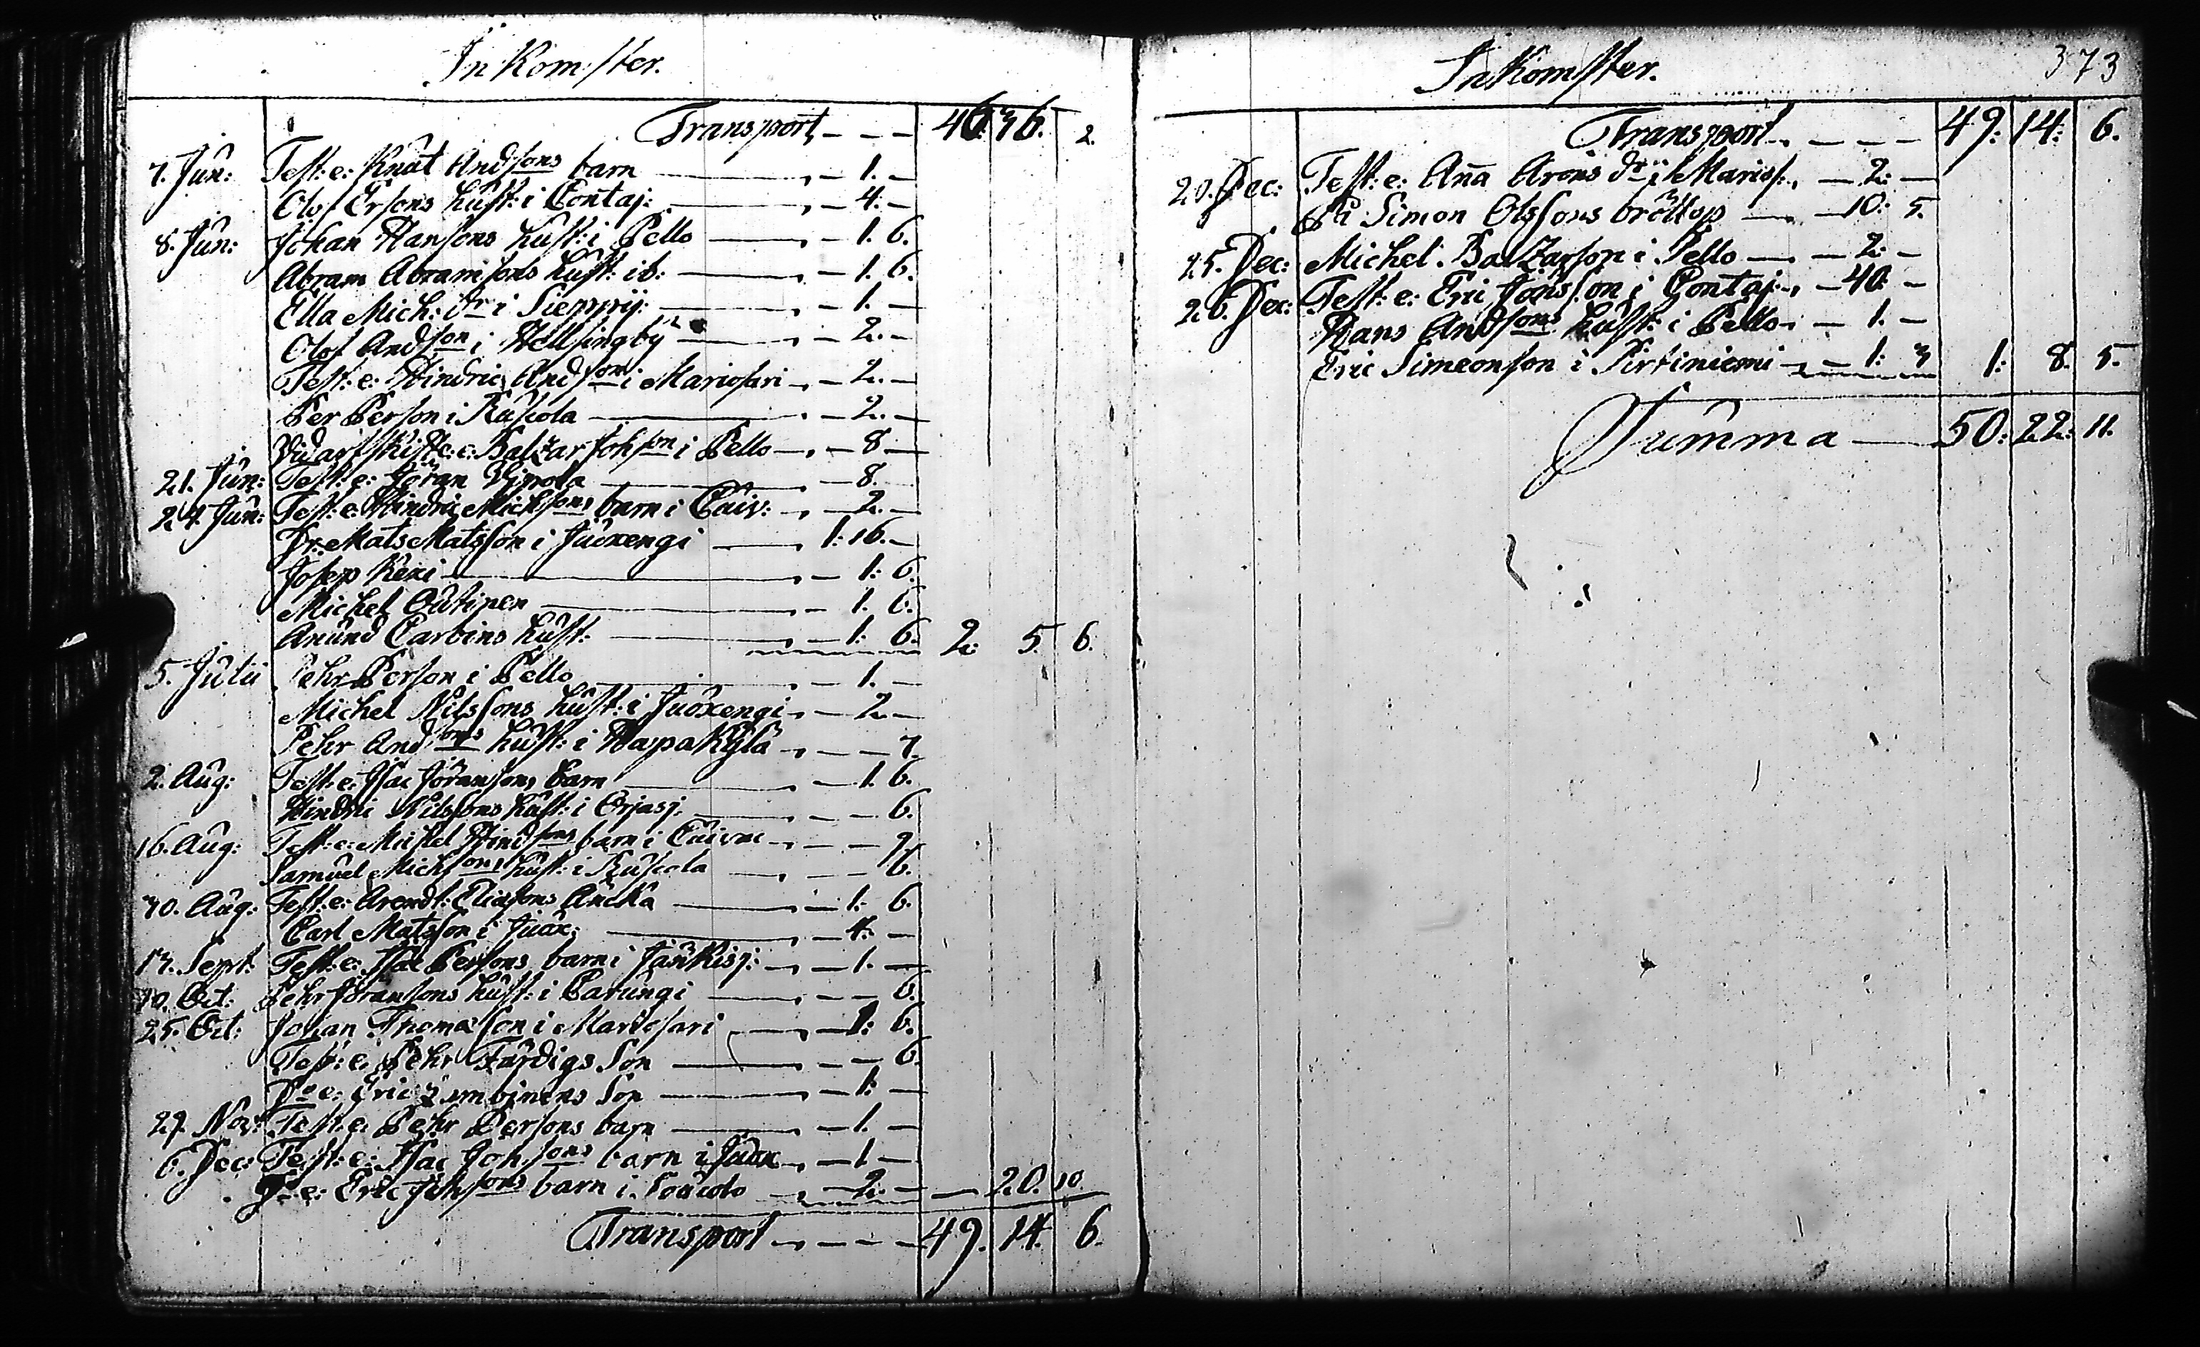 Inkomster.
Transport, - - - 46. 36. 2.
7. Jun: Test: e: Knut Andsons barn - 1. -
Olof Ersons hust: i Contaj: - 4: -
8. Jun: Johan Hansons hust: i Pello - 1. 6.
Abram Abramsons hust: ib: - 1. 6.
Ella Mich: dr i Sieppij: - 1. -
Olof Andson i Hellsingby - 2. -
Test: e: Hindric Andson i Mariosari - 2. -
Per Person i Ruskola - 2. -
e: Baltzar Johson i Pello - 8 -
21. Jun: Test: e: Jöran - 8.
24. Jun: Test: e: Hindric Michsons barn i Caiv: - 2. -
Dr: Mats Matsson i Juoxengi - 1: 16. -
Josep Kexi - 1: 6.
Michel Outinen - 1. 6.
Anund Carbins hust: - 1: 6. 2: 5. 6.
5. Julii Pehr Person i Pello - 1. -
Michel Nilssons hust: i Juoxengi - 2 -
Pehr Andsons hust: i Hapakylä - - 7.
2. Aug: Test: e: Isac Joransons barn - 1. 6.
Hindric Nilssons hust: i Orjasj: - 6.
16. Aug: Test: e: Michel Hindsons barn i Caivac - -
Samuel Michsons hust: i Ruskola - - 6.
30. Aug: Test: e: Arendt: Eliasons Äncka - 1: 6.
Carl Matsson i Juox: - 4: -
13. Sept: Test: e: Isac Persons barn i Jaukisj: - 1. -
10. Oct: Pehr Joransons hust: i Carungi - - 6.
25. Oct: Johan Thomæsson i Mariosari - 1: 6.
Test: e: Pehr Furdigs Son - - 6.
Do e: Eric Son - 1: -
27. Nov: Test: e: Pehr Persons barn - 1. -
6. Dec: Test: e: Isac Johsons barn i Juox - 1 -
D: e: Eric Johsons barn i - 2. - - 20. 10.
Transport - - - - 49. 14. 6.
Inkomster. 373
Transport - - - - 49: 14: 6.
20. Dec: Test: e: Aña Arons dr i Marios: - 2: -
På Simon Olssons bröllop - 10: 5.
25. Dec: Michel Baltzarson i Pello - 2: -
26. Dec: Test: e: Eric Jönsson i Contaj: - 40: -
Hans Andsons hust: i Pello - 1. -
Eric Simeonson i Pirtiniemi - 1: 3 1: 8. 5.
Summa - 50: 22: 11.